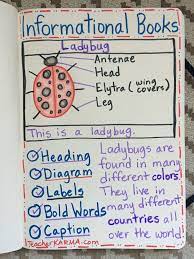 Informational Books
Ladybug
Antenae
Head
Elytra (wing covers)
Leg
This is a ladybug.
Heading
Diagram
Labels
Bold Words
Caption
Ladybugs are
found in many
different colors.
They live in
many different
countries all
over the world!
TeacherKARMA.com